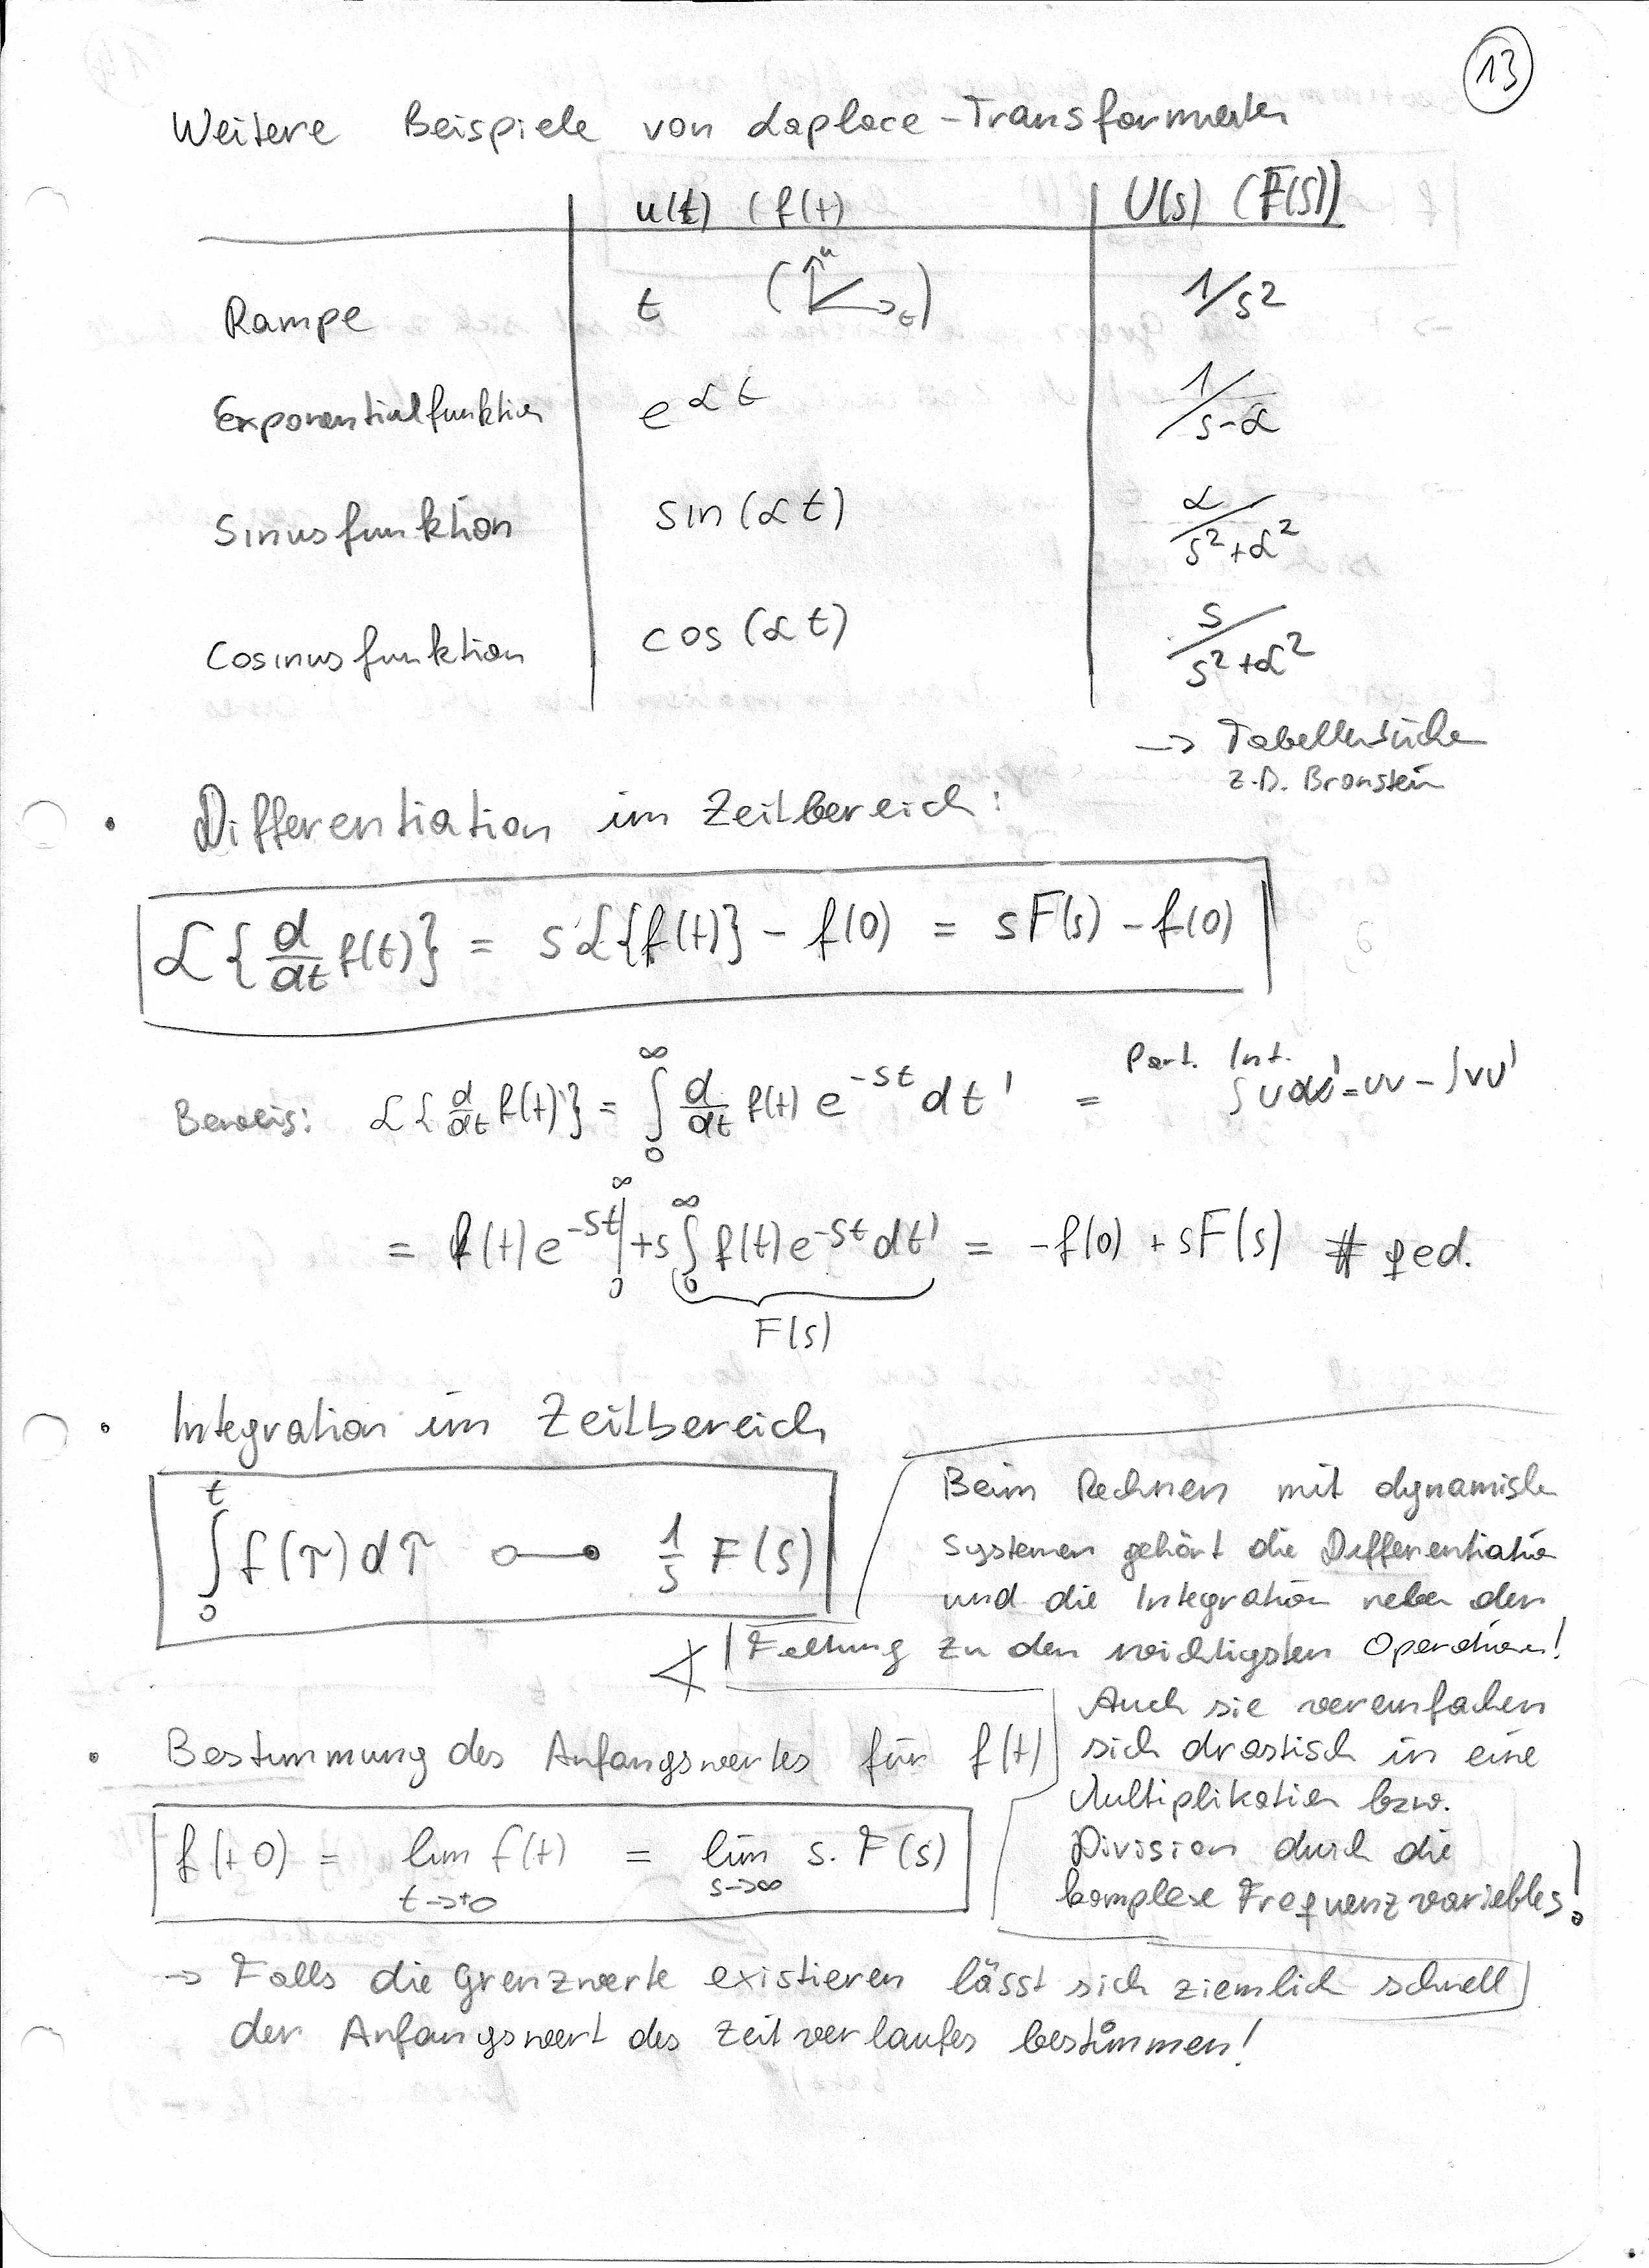 13
Weitere Beispiele von Laplace-Transformierten
u(t) (f(t) U(s) (F(s))
Rampe t (u t) 1/s²
Exponentialfunktion e^αt 1/s-α
Sinusfunktion sin(αt) α/s²+α²
Cosinusfunktion cos(αt) s/s²+α²
→ Tabellenbücher
z.B. Bronstein
• Differentiation im Zeitbereich:
ℒ{d/dt f(t)} = sℒ{f(t)} - f(0) = sF(s) - f(0)
Part. Int.
Beweis: ℒ{d/dt f(t)} = ∫₀^∞ d/dt f(t) e^-st dt' = ∫uv'=uv-∫vu'
= f(t)e^-st|₀^∞ +s∫₀^∞ f(t)e^-st dt' = -f(0) + sF(s) # qed.
F(s)
• Integration im Zeitbereich
∫₀^t f(τ)dτ ○—● 1/s F(s)
Beim Rechnen mit dynamischen
Systemen gehört die Differentiation
und die Integration neben der
Faltung zu den wichtigsten Operationen!
Auch sie vereinfachen
sich drastisch in eine
Multiplikation bzw.
Division durch die
komplexe Frequenzvariable s!
• Bestimmung des Anfangswertes für f(t)
f(+0) = lim t→+0 f(t) = lim s→∞ s·F(s)
→ Falls die Grenzwerte existieren lässt sich ziemlich schnell
der Anfangswert des Zeitverlaufes bestimmen!